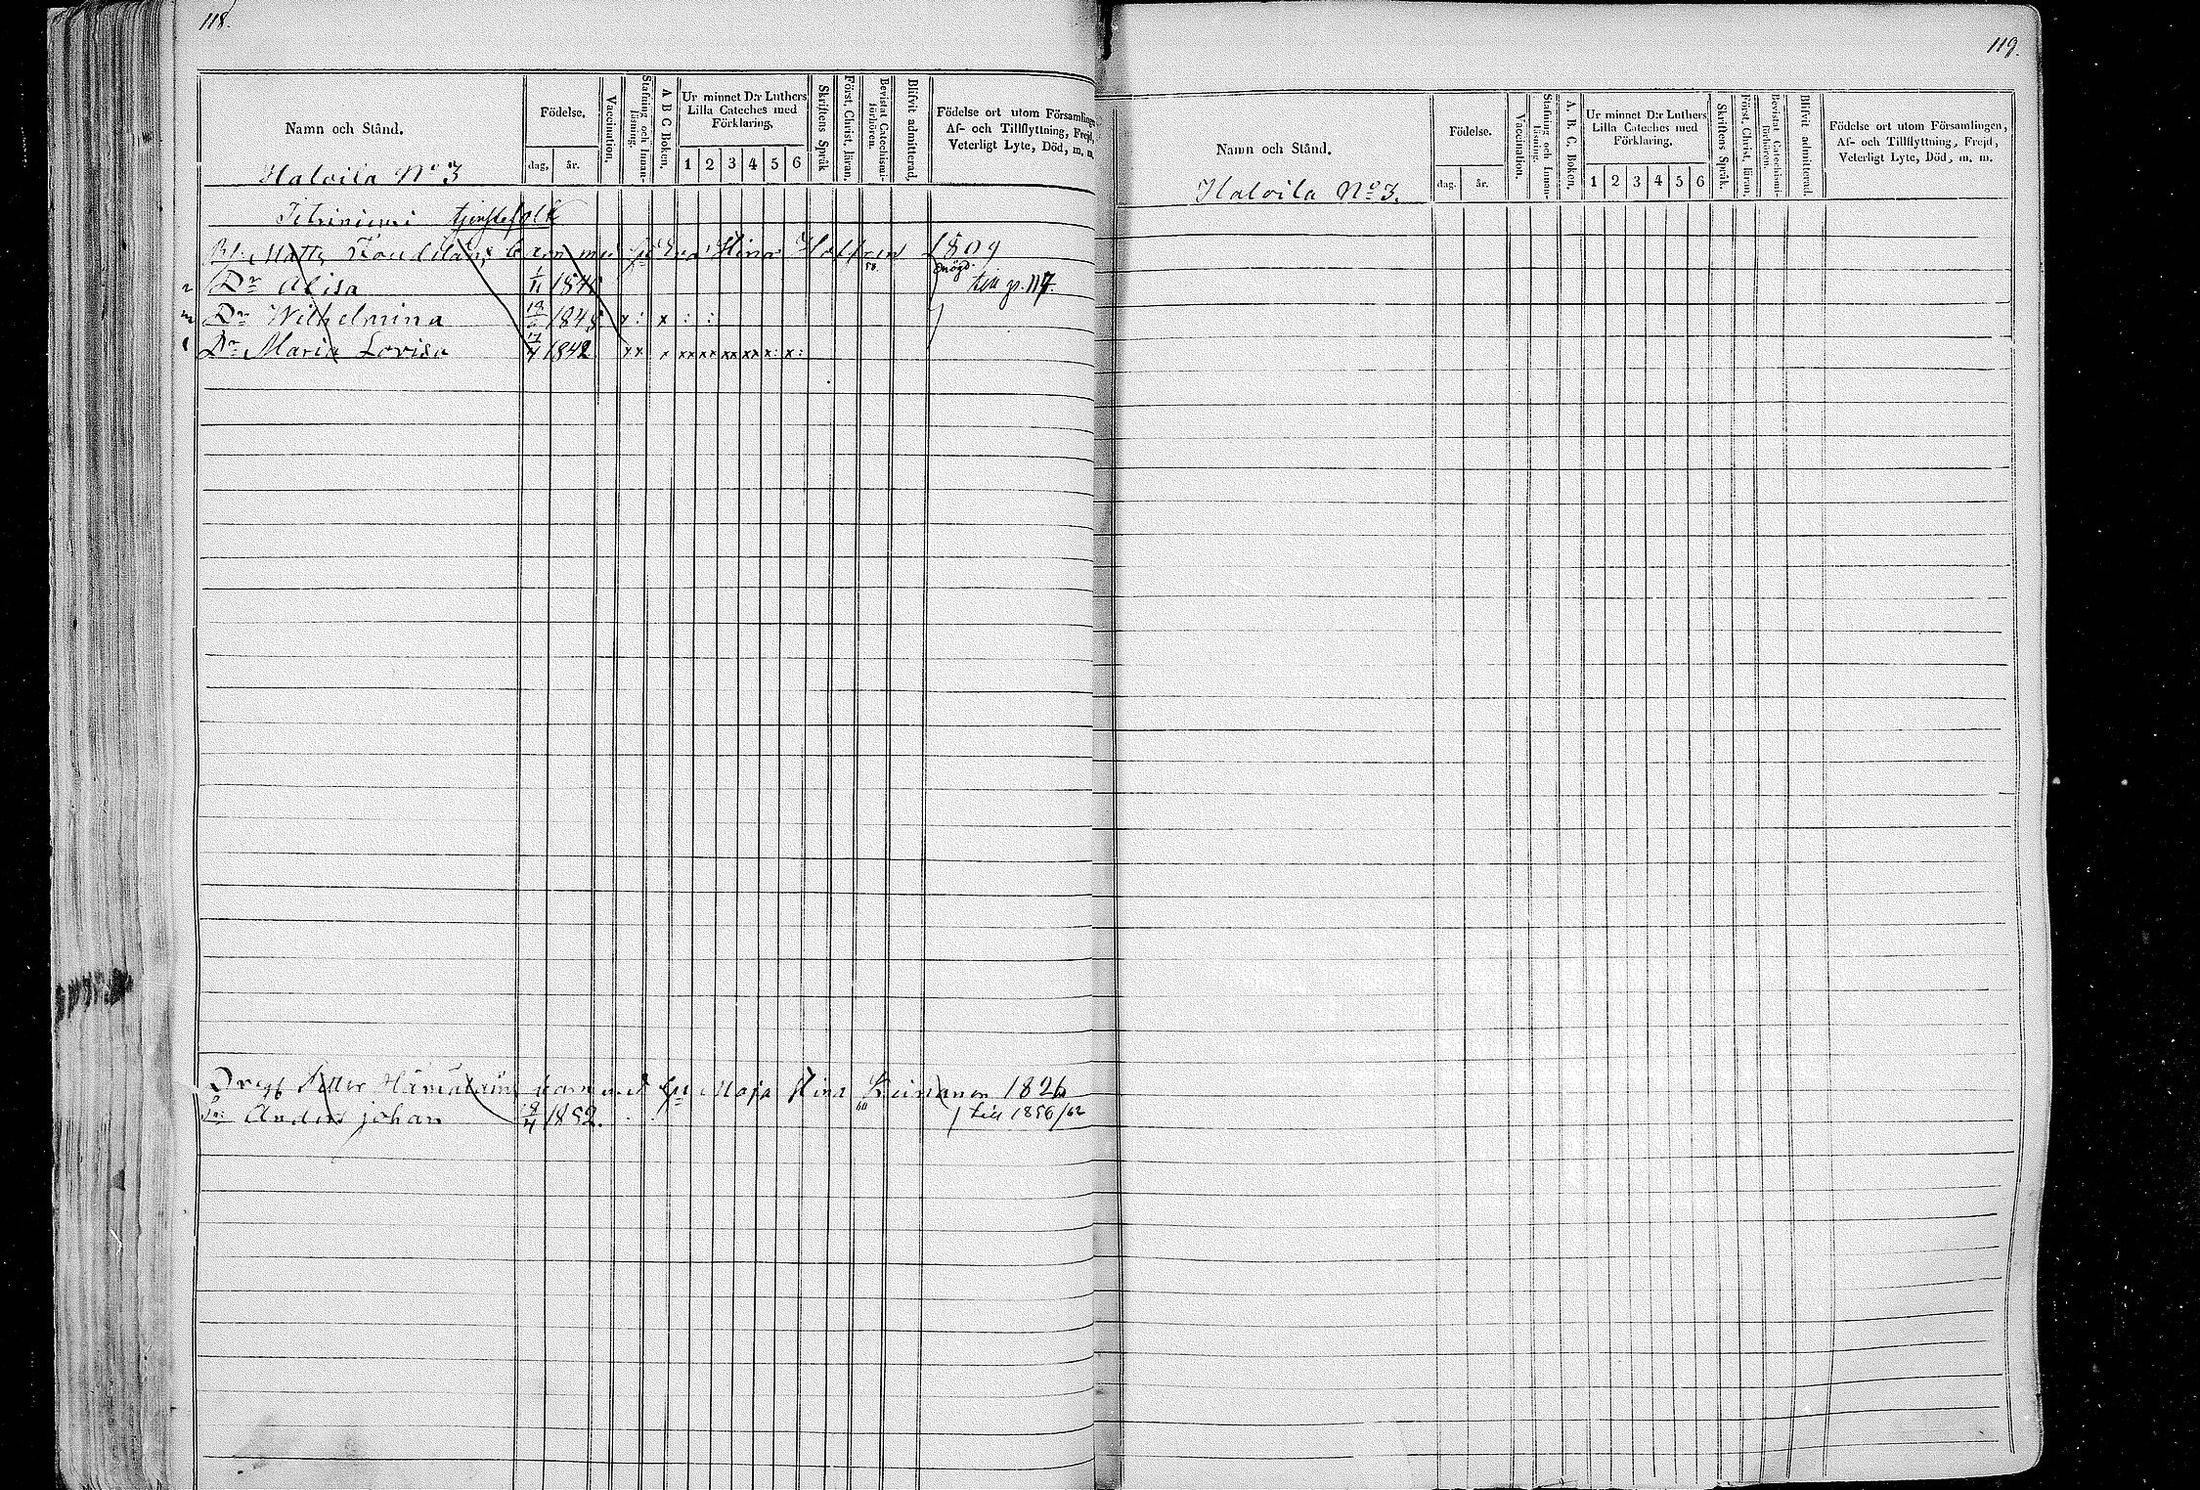 118.
Namn och Stånd.
Födelse.
dag. år.
Vaccination.
Stafning och Innan-läsning.
A B C Boken.
Ur minnet D:r Luthers
Lilla Cateches med
Förklaring.
1 2 3 4 5 6
Skriftens Språk
Först. Christ. läran.
Bevistat Catechismi-förhören.
Blifvit admitterad
Födelse ort utom Församlingen
Af- och Tillflyttning, Frejd,
Veterligt Lyte, Död, m. m.
Halvila No 3
tjenstefolk
Matts barn med Stina 1809
Dr Alisa 1/11 till p. 117.
Dr Wilhelmina 1848 x : x : :
Dr Maria Lovisa 1842 xx x xx xx xx xx x: x:
58
Petter barn med Maja Stina 1826
Anders Johan 1852. 60 till 1856/62
119.
Namn och Stånd.
Födelse.
dag. år.
Vaccination.
Stafning och Innan-läsning.
A. B. C. Boken.
Ur minnet D:r Luthers
Lilla Cateches med
Förklaring.
1 2 3 4 5 6
Skriftens Språk.
Först. Christ. läran.
Bevistat Catechismi-förhören.
Blifvit admitterad.
Födelse ort utom Församlingen,
Af- och Tillflyttning, Frejd,
Veterligt Lyte, Död, m. m.
Halvila No 3.